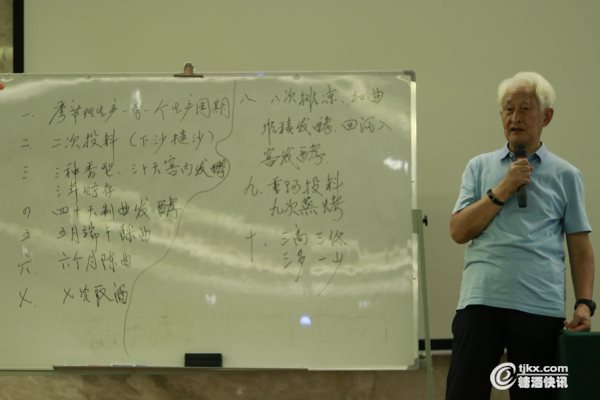 一. 季节性生产 一年一个生产周期
二. 二次投料 (下沙糙沙)
三. 三种香型. 三十天窖内发酵
三年贮存
四 四十天制曲发酵
五. 五月端午踩曲
六. 六个月陈曲
七. 七次取酒
八 八次摊凉. 加曲
堆积发酵. 回酒入
窖发酵.
九. 重阳投料
九次蒸烤
十. 三高 三低
三多 一少
tjkx.com
糖酒快讯